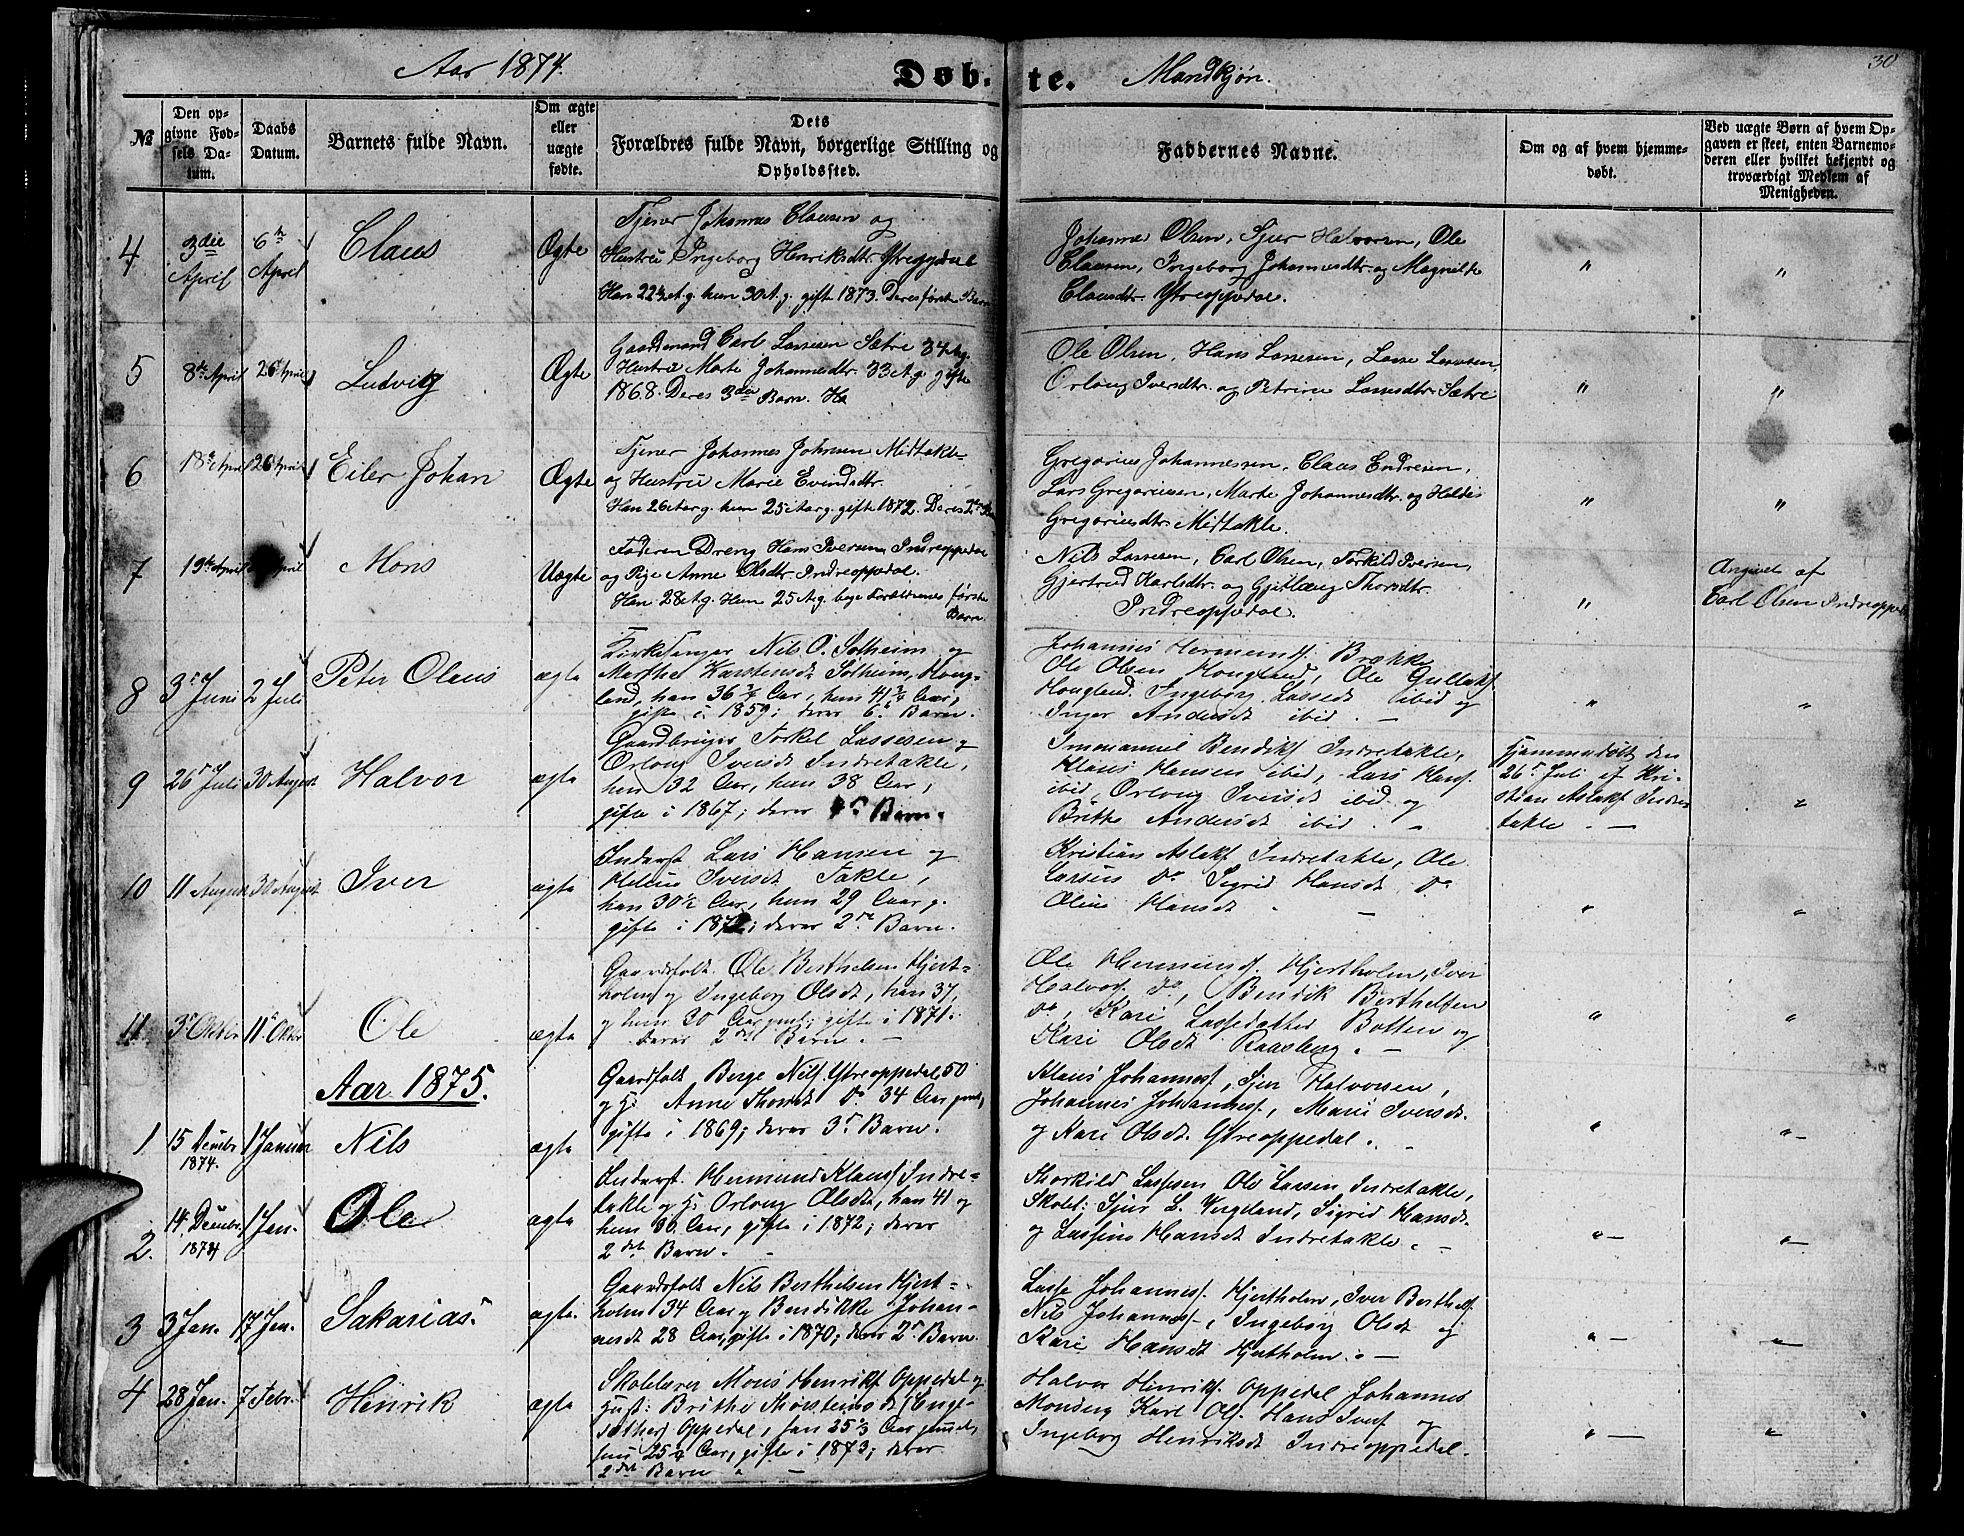 Aar 1874.
Døb-
te.
Mandkjøn.
30
№
Den op-
givne Fød-
sels Da-
tum.
Daabs
Datum.
Barnets fulde Navn.
Om ægte
eller
uægte
fødte.
Dets
Forældres fulde Navn, borgerlige Stilling og
Opholdssted.
Faddernes Navne.
Om og af hvem hjemme-
døbt.
Ved uægte Børn af hvem Op-
gaven er skeet, enten Barnemo-
deren eller hvilket bekjendt og
troværdigt Medlem af
Menigheden.
4
3die
April
6te
April
Claus
Ægte
Tjener Johannes Clausen og
Hustru Ingeborg Henriksdtr Ytreoppedal
Han 22½ A. g. hun 30 A. g. gifte 1873. Deres første Barn
Johannes Olsen, Sjur Halvorsen, Ole
Clausen, Ingeborg Johannesdtr. og Magnilde
Clausdtr. Ytreoppedal.
"
"
5
8de April
26 April
Ludvig
Ægte
Gaardmand Carl Lassesen Sætre 34 A. g.
Hustru Marte Johannesdtr. 33 A. g. gifte
1868. Deres 3die Barn. Ha
Ole Olsen, Hans Lassesen, Lasse Lassesen,
Orloug Iversdtr. og Petrine Lassesdtr. Sætre
"
"
6
18de April
26 April
Eiler Johan
Ægte
Tjener Johannes Johnsen Midtakle
og Hustru Marie Evindsdtr.
Han 26 Aar g. hun 25 Aar g. gifte 1872. Deres 2den Barn
Gregorius Johannessen, Claus Endresen,
Lars Gregoriussen, Marte Johannesdtr. og Helde
Gregoriusdtr. Midtakle.
"
"
7
19de April
April
Mons
Uægte
Faderen Dreng Hans Iversen Indreoppedal
og Pige Anne Olsdtr. Indreoppedal.
Han 28 A. g. Hun 25 A. g. bege Forældrenes første
Barn
Nils Lassesen, Carl Olsen, Torkild Iversen,
Gjertrud Karlsdtr. og Gjitlaug Thorsdtr.
Indreoppedal.
"
Angivet af
Carl Olsen Indreoppedal
8
3 Juni
2 Juli
Peter Olaus
ægte
Kirkesanger Nils O. Solheim og
Marthe Karstensdt Solheim, Houg-
land, han 36 ¾ Aar, hun 41 ¾ Aar,
gifte i 1859; deres 6te Barn.
Johannes Hermunds. Brække
Ole Olsen Hougland, Ole Gullaks.
Hougland. Ingeborg Lassesdt ibid og
Inger Andersdt ibid. —
"
"
9
26 Juli
30 August
Halvor
ægte
Gaardbruger Torkel Lassesen og
Orloug Iversdt Indretakle,
han 32 Aar, hun 38 Aar,
gifte i 1867; deres Barn.
Immanuel Bendiks. Indretakle,
Klaus Hansen ibid, Lars Hans.
ibid, Orloug Iversdt ibid og
Brithe Andersdt ibid.
Hjemmedøbt den
26 Juli af Kri-
stian Aslaks. Indre
takle. —
"
10
11 August
30 August
Iver
ægte
Inderst Lars Hansen og
Helene Iversdt Takle,
han 30½ Aar, hun 29 Aar g.
gifte i 1872; deres 2de Barn.
Kristian Aslaks. Indretakle, Ole
Larsen do Sigrid Hansdt do
Oline Hansdt —
"
"
11
3 Oktbr
11 Oktbr
Ole
ægte
Gaardsfolk Ole Berthelsen Hjert-
holm og Ingeborg Olsdt, han 37,
og hun 30 Aar gml; gifte i 1871.
deres 2det Barn. —
Ole Hermunds. Hjertholm, Iver
Halvors. do, Bendik Berthelsen
do, Kari Lassedatter Botten og
Kari Olsdt Raasberg. —
"
"
Aar 1875.
1
15 Decmbr
1874.
1 Januar
Nils
ægte
Gaardfolk Berge Nils. Ytreoppedal 50
og H. Anne Thorsdt do 34 Aar gml,
gifte i 1869; deres 3 Barn.
Klaus Johanness., Sjur Halvorsen,
Johannes Johanness., Marie Iversdt.
og Kari Olsdt. Ytreoppedal.
"
"
2.
14 Decmbr.
1874
1 Jan.
Ole
ægte
Inderst. Hermund Klaus. Indre-
takle og H. Orloug Olsdt, han 41 og
hun 30 Aar, gifte i 1872; deres
2det Barn.
Thorkild Lassesen Ole Larsen Indretakle,
Skolel: Sjur L. Vergeland, Sigrid Hansdt.
og Lassine Hansdt Indretakle. —
"
"
3
3 Jan.
17 Jan.
Sakarias.
ægte.
Gaardsfolk Nils Berthelsen Hjert-
holm 34 Aar og Bendikke Johan-
nesdt 28 Aar, gifte i 1870; deres 2 Barn.
Lasse Johanness. Hjertholm, Iver Berthels.
Nils Johanness., Ingeborg Olsdt og
Kari Hansdt Hjertholm. —
"
"
4
28 Jan.
7 Febr.
Henrik
ægte
Skolelærer Mons Henriks. Oppedal og
Hust: Brithe Monsteinsdt (Enge-
sæther) Oppedal, han 25 ⅓ Aar gml,
hun 25 ¼ Aar, gifte i 1873; deres
2det Barn
Halvor Henriks. Oppedal Johannes
Monsen, Karl Ols. Hans Ivers. og
Ingeborg Henriksdt Indreoppedal.
"
"